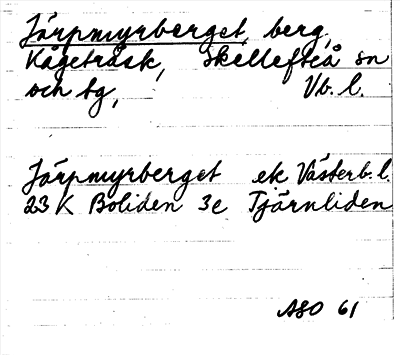 Järpmyrberget, berg,
Kågeträsk, Skellefteå sn
och tg, Vb. l.
Järpmyrberget ek Västerb. l.
23 K Boliden 3e Tjärnliden
ASO 61